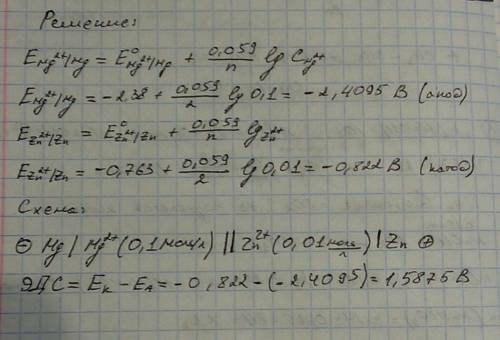 Решение:
E Hg²⁺/Hg = E⁰ Hg²⁺/Hg + 0,059/n lg C Hg²⁺
E Hg²⁺/Hg = -2,38 + 0,059/2 lg 0,1 = -2,4095 В (анод)
E Zn²⁺/Zn = E⁰ Zn²⁺/Zn + 0,059/n lg Zn²⁺
E Zn²⁺/Zn = -0,763 + 0,059/2 lg 0,01 = -0,822 В (катод)
Схема:
⊖ Hg | Hg²⁺ (0,1 моль/л) || Zn²⁺ (0,01 моль/л) | Zn ⊕
ЭДС = Eк - EА = -0,822 - (-2,4095) = 1,5875 В